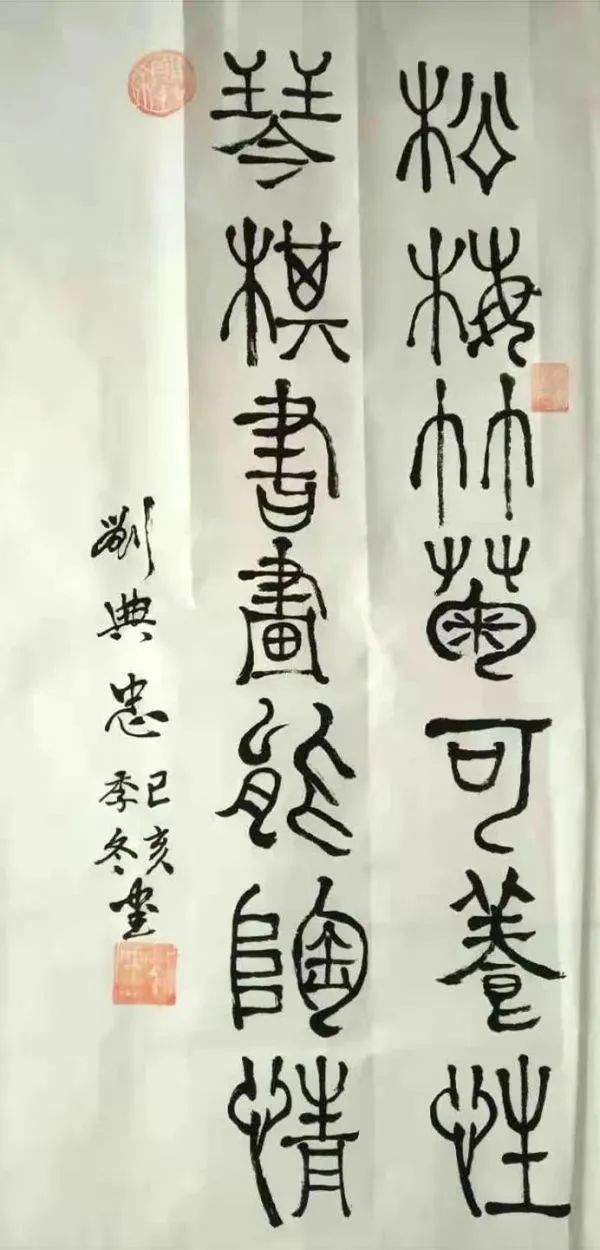 松梅竹菊可養性
琴棋書畫能陶情
己亥
季冬
劉典忠